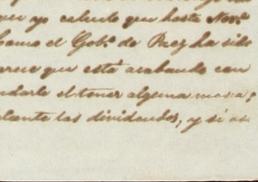 que yo calculo que hasta Nov.e
como el Gob.o de Paez ha sido
parece que está acabando con
darle el tener alguna masa
elante las dividendos, y si as